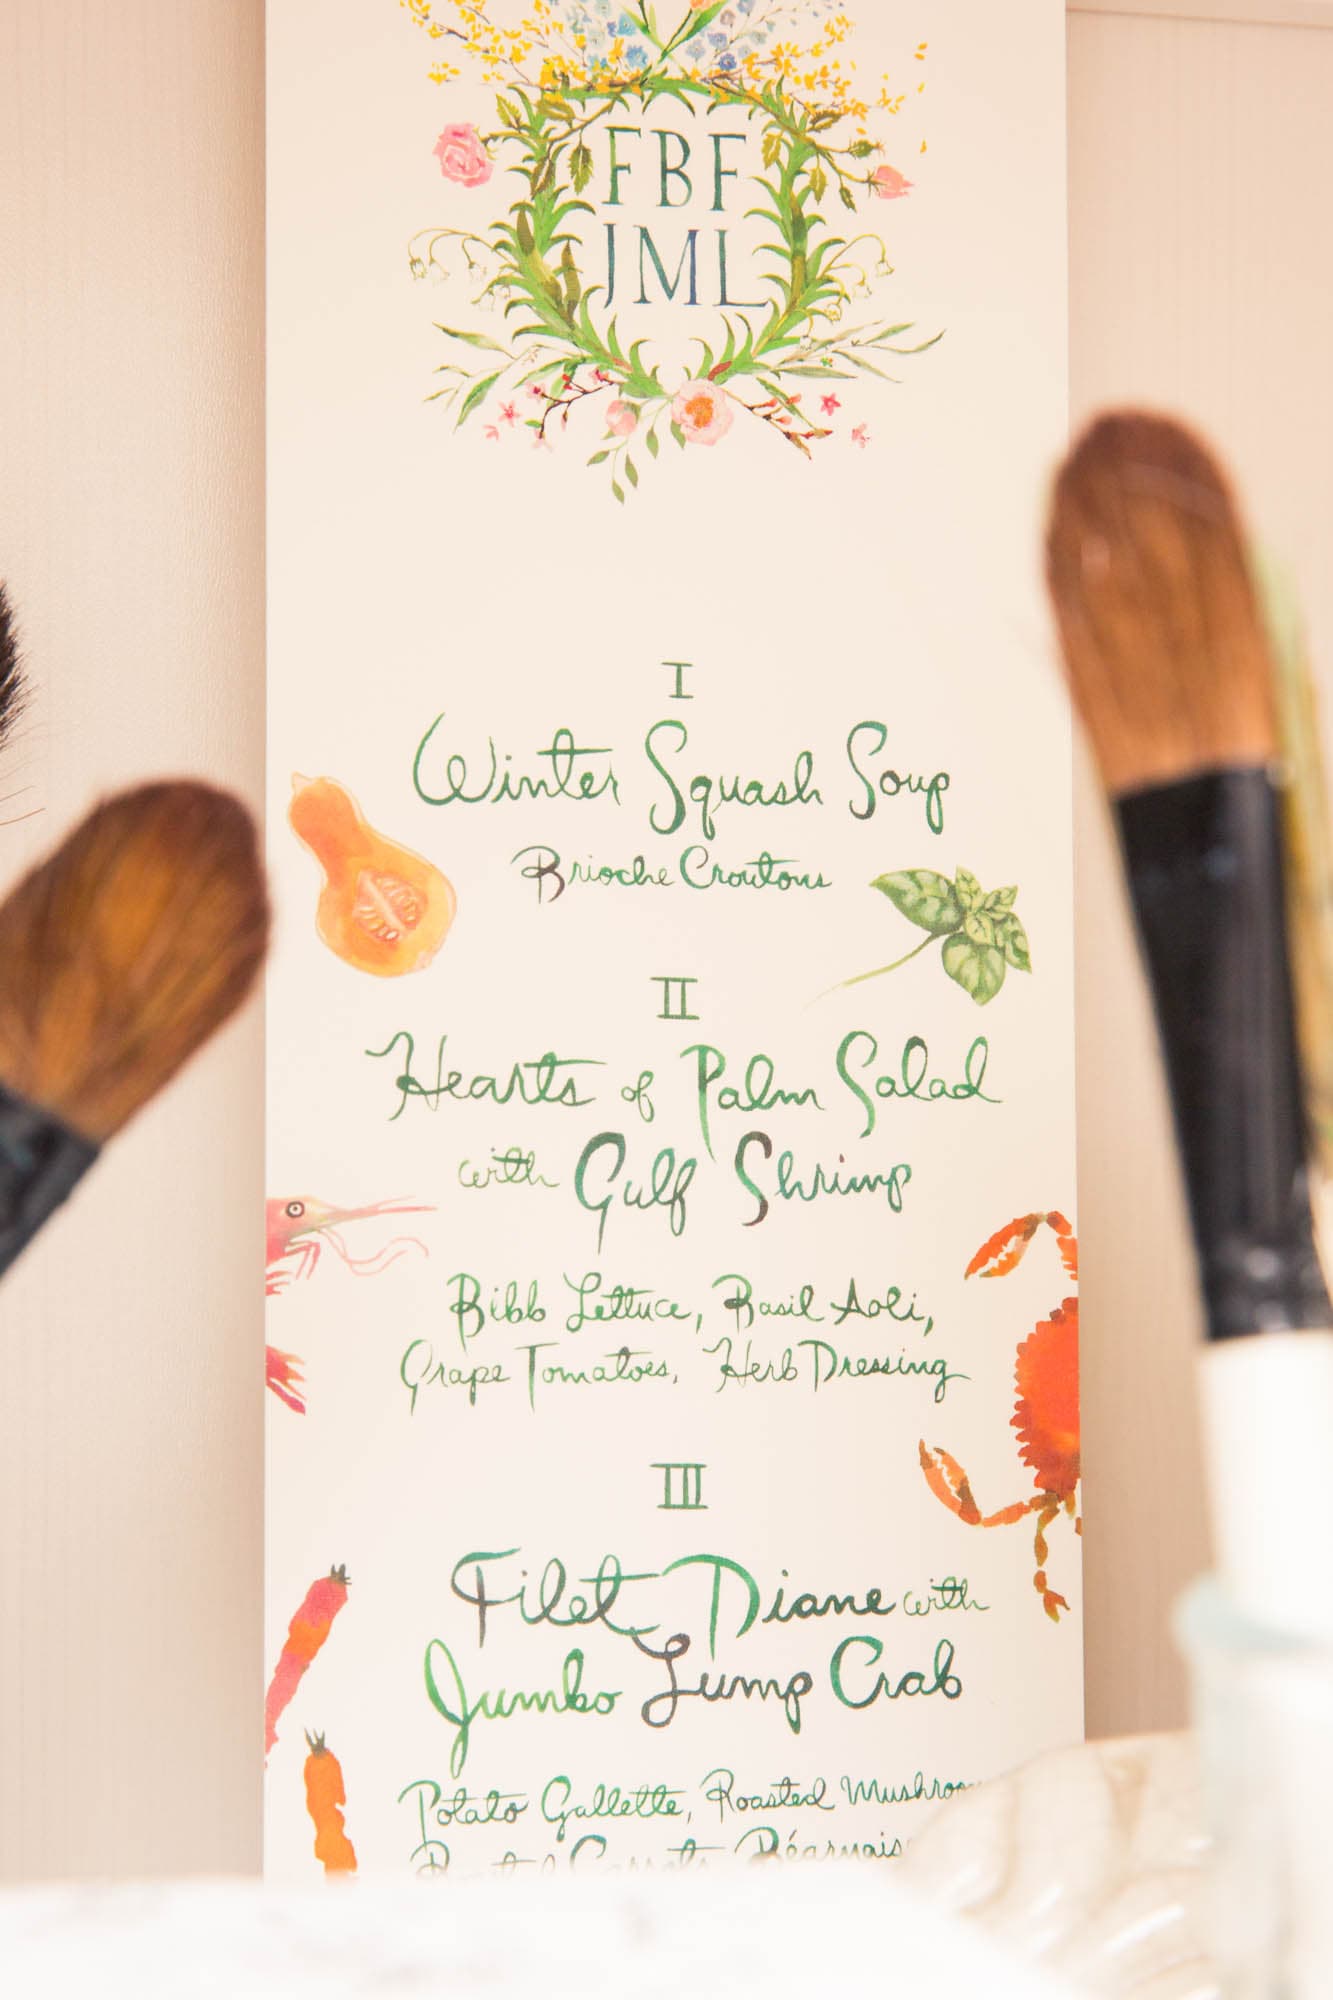 FBF
JML
I
Winter Squash Soup
Brioche Croutons
II
Hearts of Palm Salad
with Gulf Shrimp
Bibb Lettuce, Basil Aoli,
Grape Tomatoes, Herb Dressing
III
Filet Diane with
Jumbo Lump Crab
Potato Gallette, Roasted
Carrots, Béarnais